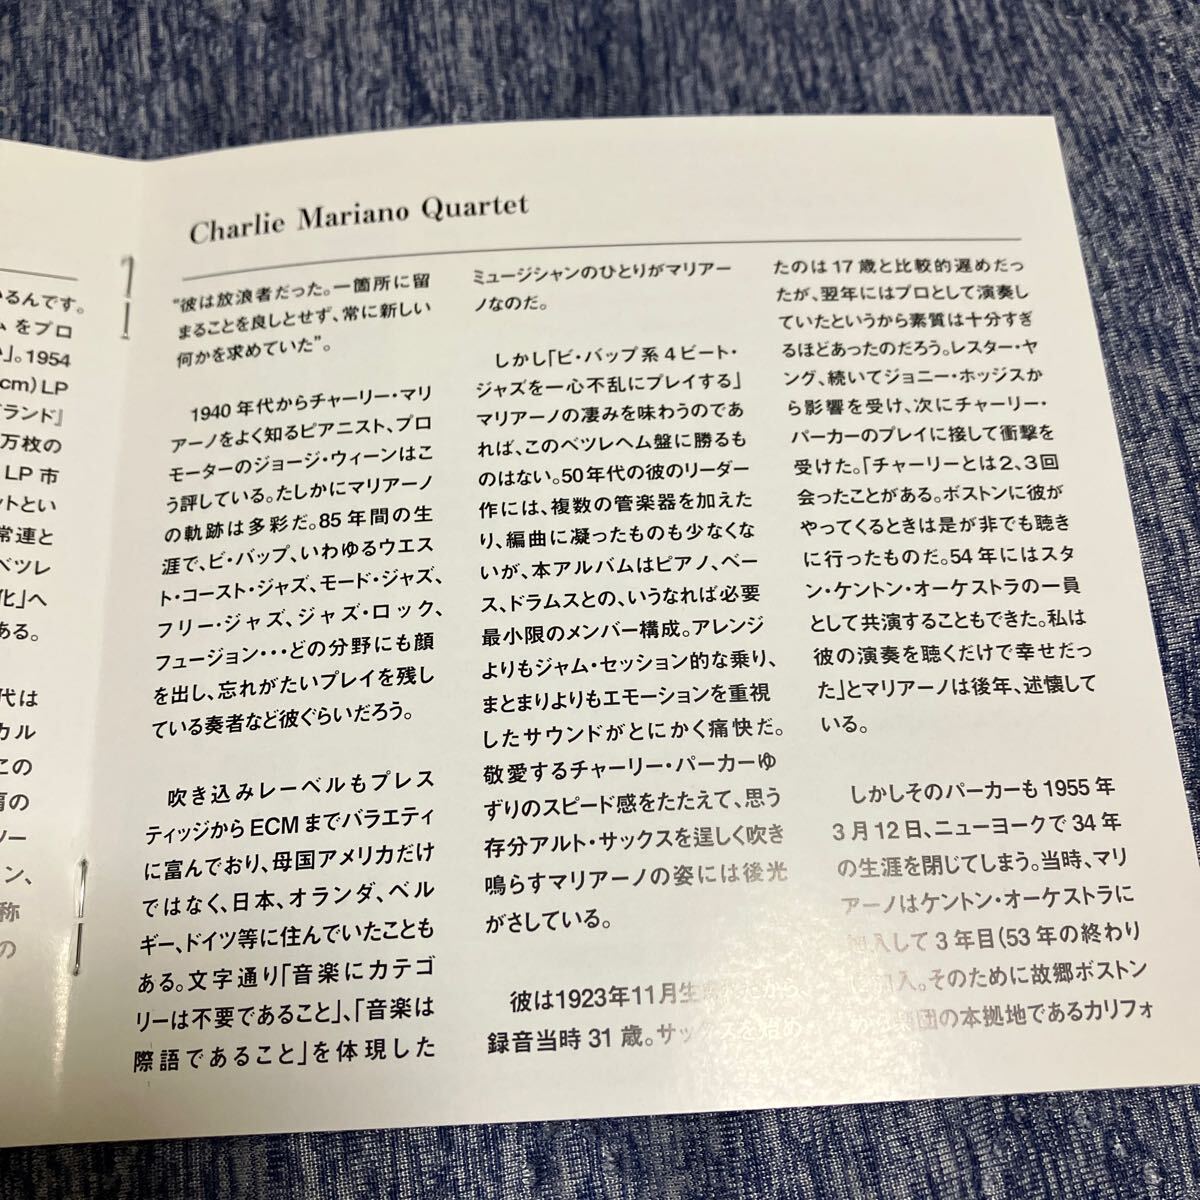 いるんです。
ム をプロ
い」。1954
cm)LP
『ランド』
万枚の
LP 市
ットとい
常連と
ベツレ
化」へ
ある。
代は
カル
この
肩の
ツー
ン、
称
の
Charlie Mariano Quartet
“彼は放浪者だった。一箇所に留
まることを良しとせず、常に新しい
何かを求めていた”。
1940 年代からチャーリー・マリ
アーノをよく知るピアニスト、プロ
モーターのジョージ・ウィーンはこ
う評している。たしかにマリアーノ
の軌跡は多彩だ。85 年間の生
涯で、ビ・バップ、いわゆるウエス
ト・コースト・ジャズ、モード・ジャズ、
フリー・ジャズ、ジャズ・ロック、
フュージョン・・・どの分野にも顔
を出し、忘れがたいプレイを残し
ている奏者など彼ぐらいだろう。
吹き込みレーベルもプレス
ティッジから ECM までバラエティ
に富んでおり、母国アメリカだけ
ではなく、日本、オランダ、ベル
ギー、ドイツ等に住んでいたことも
ある。文字通り「音楽にカテゴ
リーは不要であること」、「音楽は
際語であること」を体現した
ミュージシャンのひとりがマリアー
ノなのだ。
しかし「ビ・バップ系 4 ビート・
ジャズを一心不乱にプレイする」
マリアーノの凄みを味わうのであ
れば、このベツレヘム盤に勝るも
のはない。50 年代の彼のリーダー
作には、複数の管楽器を加えた
り、編曲に凝ったものも少なくな
いが、本アルバムはピアノ、ベー
ス、ドラムスとの、いうなれば必要
最小限のメンバー構成。アレンジ
よりもジャム・セッション的な乗り、
まとまりよりもエモーションを重視
したサウンドがとにかく痛快だ。
敬愛するチャーリー・パーカーゆ
ずりのスピード感をたたえて、思う
存分アルト・サックスを逞しく吹き
鳴らすマリアーノの姿には後光
がさしている。
彼は1923年11月生 から、
録音当時 31 歳。サックスを始め
たのは 17 歳と比較的遅めだっ
たが、翌年にはプロとして演奏し
ていたというから素質は十分すぎ
るほどあったのだろう。レスター・ヤ
ング、続いてジョニー・ホッジスか
ら影響を受け、次にチャーリー・
パーカーのプレイに接して衝撃を
受けた。「チャーリーとは 2、3 回
会ったことがある。ボストンに彼が
やってくるときは是が非でも聴き
に行ったものだ。54 年にはスタ
ン・ケントン・オーケストラの一員
として共演することもできた。私は
彼の演奏を聴くだけで幸せだっ
た」とマリアーノは後年、述懐して
いる。
しかしそのパーカーも 1955 年
3 月 12 日、ニューヨークで 34 年
の生涯を閉じてしまう。当時、マリ
アーノはケントン・オーケストラに
加入して 3 年目（53 年の終わり
に加入。そのために故郷ボストン
団の本拠地であるカリフォ